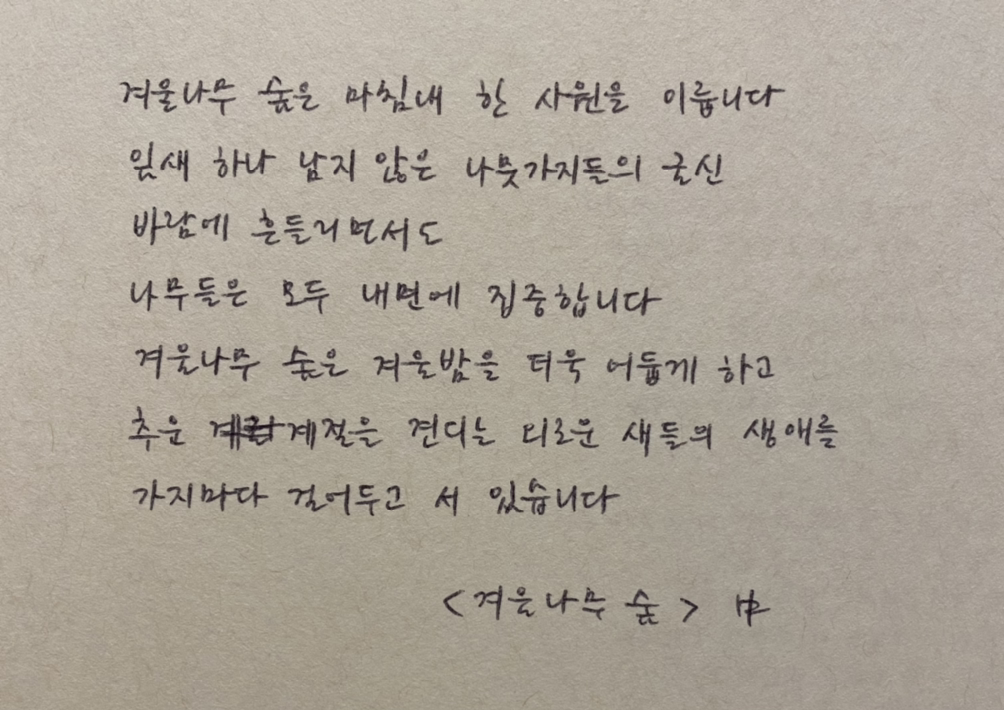 겨울나무 숲은 마침내 한 사원을 이룹니다
잎새 하나 남지 않은 나뭇가지들의 굴신
바람에 흔들리면서도
나무들은 모두 내면에 집중합니다
겨울나무 숲은 겨울밤을 더욱 어둡게 하고
추운 계절을 견디는 외로운 새들의 생애를
가지마다 걸어두고 서 있습니다
<겨울나무 숲> 中